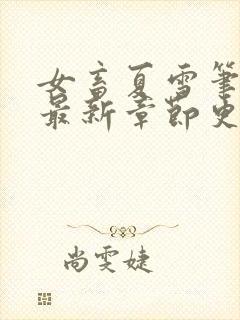 女畜夏雪笔
最新章节史
尚雯婕